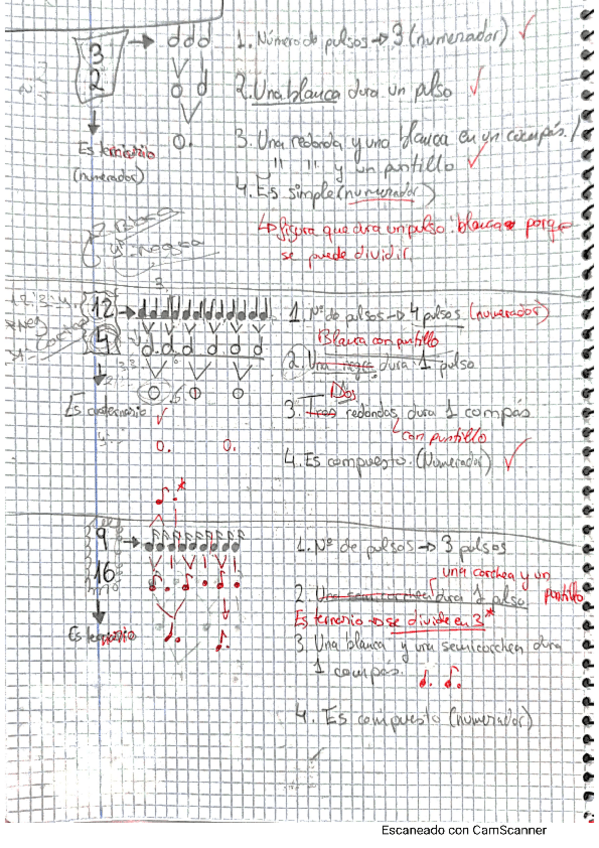 3
2
1. Número de pulsos → 3 (numerador) ✓
2. Una blanca dura un pulso ✓
3. Una redonda y una blanca en un compás. /
" " y un puntillo ✓
Es ternario
(numerador)
4. Es simple (numerador)
↳ figura que dura un pulso: blanca porque
se puede dividir.
12
4
1. Nº de pulsos → 4 pulsos (numerador)
Blanca con puntillo
2. Una negra dura 1 pulso
Dos
Es cuaternario
3. Tres redondas dura 1 compás
con puntillo
4. Es compuesto. (Numerador) ✓
9
16
1. Nº de pulsos → 3 pulsos
una corchea y un
2. Una semicorchea dura 1 pulso puntillo
Es ternario → se divide en 3*
Es ternario
3. Una blanca y una semicorchea dura
1 compás.
4. Es compuesto (numerador)
Escaneado con CamScanner